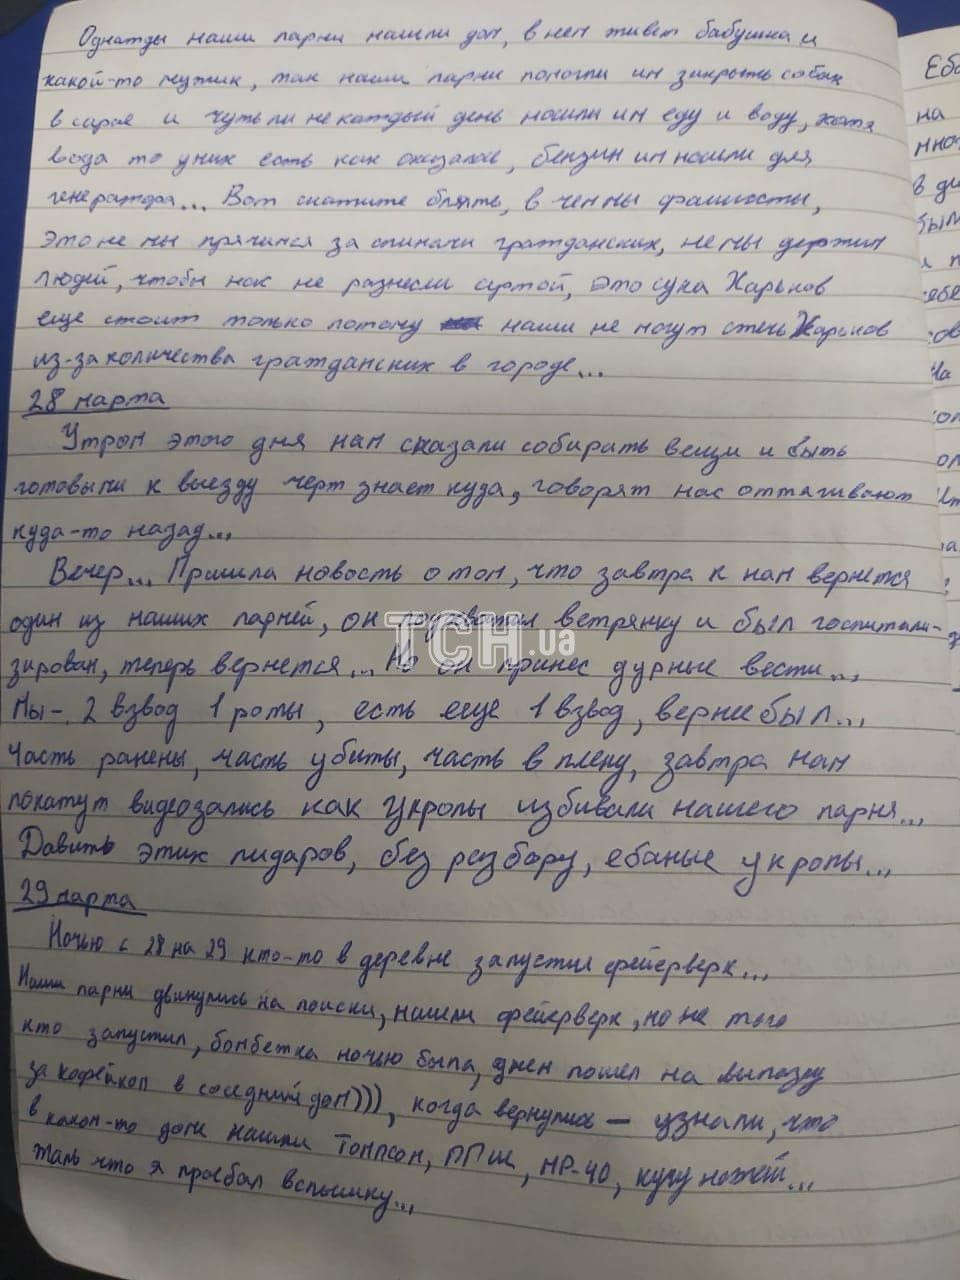 Однажды наши парни нашли дом, в нём живёт бабушка и
какой-то мужик, так наши парни помогли им закрыть собак
в сарае и чуть ли не каждый день носили им еду и воду, хотя
вода то у них есть как оказалось, бензин им носили для
генератора... Вот скажите блять, в чем мы фашисты,
это не мы прячимся за спинами гражданских, не мы держим
людей, чтобы нас не разнесли артой, это сука Харьков
еще стоит только потому наши не могут стечь Харьков
из-за количества гражданских в городе...
28 марта
Утром этого дня нам сказали собирать вещи и быть
готовыми к выезду черт знает куда, говорят нас оттягивают
куда-то назад...
Вечер... Пришла новость о том, что завтра к нам вернется
один из наших парней, он подхватил ветрянку и был госпитали-
зирован, теперь вернется... Но он принес дурные вести...
Мы - 2 взвод 1 роты, есть еще 1 взвод, верне был...
Часть ранены, часть убиты, часть в плену, завтра нам
покажут видеозапись как укропы избивали нашего парня...
Давить этих пидаров, без разбору, ебаные укропы...
29 марта
Ночью с 28 на 29 кто-то в деревне запустил фейерверк...
Наши парни двинулись на поиски, нашли фейерверк, но не того
кто запустил, бомбежка ночью была, днем пошел на вылазку
за кофейком в соседний дом))), когда вернулись – узнали, что
в каком-то доме нашли Томпсон, ППШ, НР-40, кучу ножей...
Жаль что я проебал вспышку...
ТСН.ua
Ебо
на
мног
в ди
был